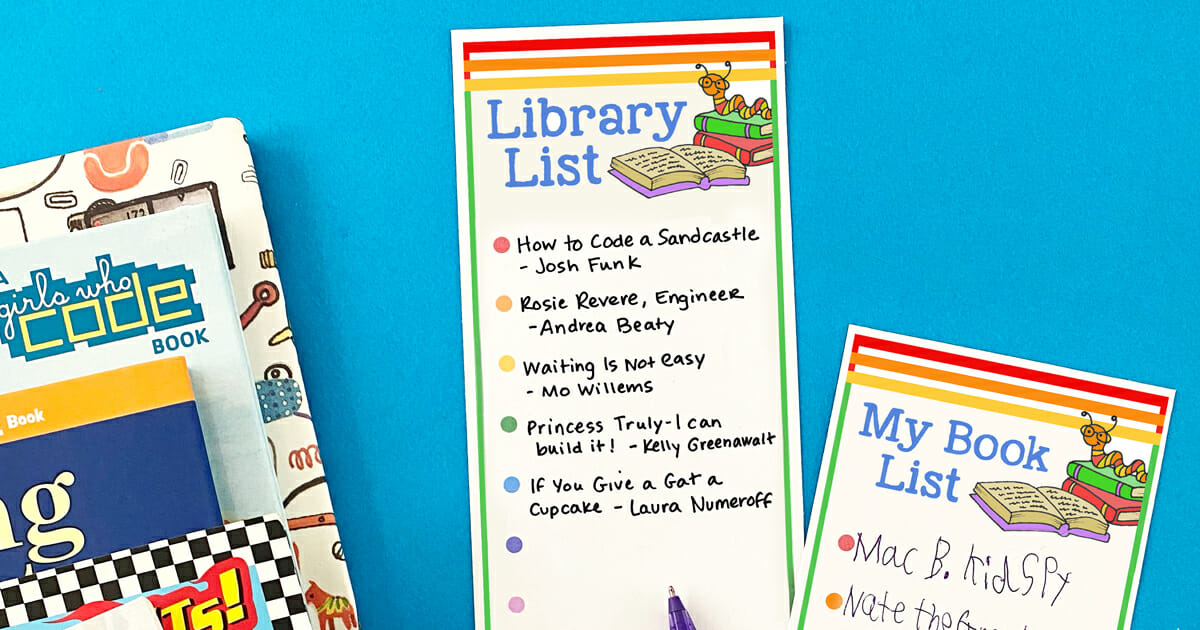 Library
List
How to Code a Sandcastle
- Josh Funk
Rosie Revere, Engineer
- Andrea Beaty
Waiting Is Not easy
- Mo Willems
Princess Truly - I can
build it! - Kelly Greenawalt
If You Give a Gat a
Cupcake - Laura Numeroff
My Book
List
Mac B. Kid SPy
Nate the
A
girls who
code
BOOK
Book